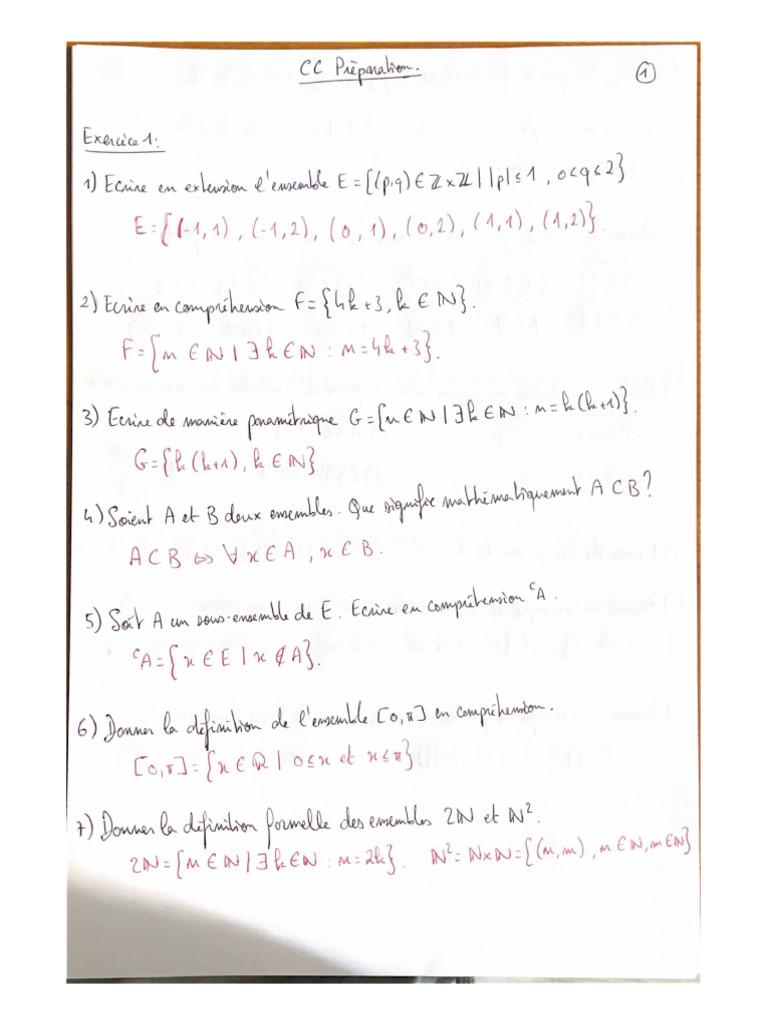 CC Préparation.
1
Exercice 1:
1) Ecrire en extension l'ensemble E={(p,q) ∈ ℤ×ℤ | |p|≤1, 0<q≤2}
E={(-1,1), (-1,2), (0,1), (0,2), (1,1), (1,2)}.
2) Ecrire en compréhension F={4k+3, k∈ℕ}.
F={n∈ℕ | ∃k∈ℕ : n=4k+3}.
3) Ecrire de manière paramétrique G={n∈ℕ | ∃k∈ℕ : n=k(k+1)}.
G={k(k+1), k∈ℕ}.
4) Soient A et B deux ensembles. Que signifie mathématiquement A⊂B?
A⊂B ⇔ ∀x∈A, x∈B.
5) Soit A un sous-ensemble de E. Ecrire en compréhension ᶜA.
ᶜA={x∈E | x∉A}.
6) Donner la définition de l'ensemble [0,π] en compréhension.
[0,π]={x∈ℝ | 0≤x et x≤π}
7) Donner la définition formelle des ensembles 2ℕ et ℕ².
2ℕ={n∈ℕ | ∃k∈ℕ : n=2k}. ℕ²=ℕ×ℕ={(n,m), n∈ℕ, m∈ℕ}